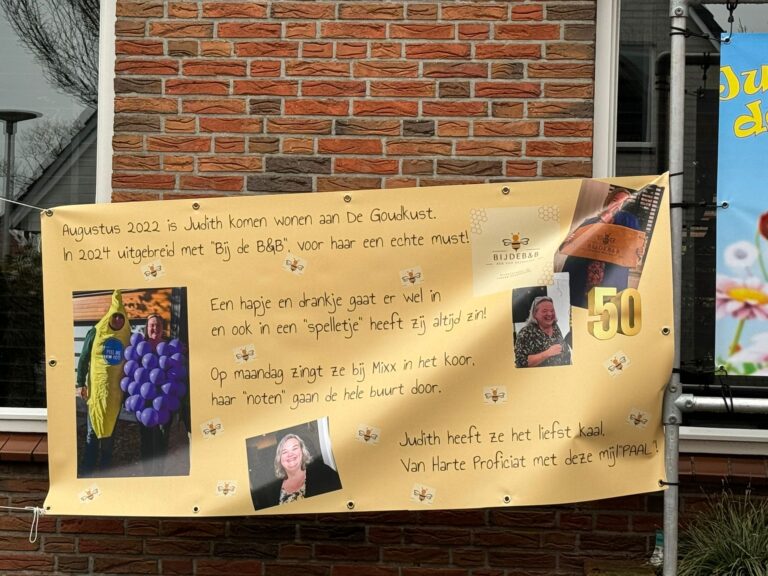 Augustus 2022 is Judith komen wonen aan De Goudkust.
In 2024 uitgebreid met "Bij de B&B", voor haar een echte must!
BIJDEB&B
Een hapje en drankje gaat er wel in
en ook in een "spelletje" heeft zij altijd zin!
50
Op maandag zingt ze bij Mixx in het koor,
haar "noten" gaan de hele buurt door.
Judith heeft ze het liefst kaal.
Van Harte Proficiat met deze mijl"PAAL"!